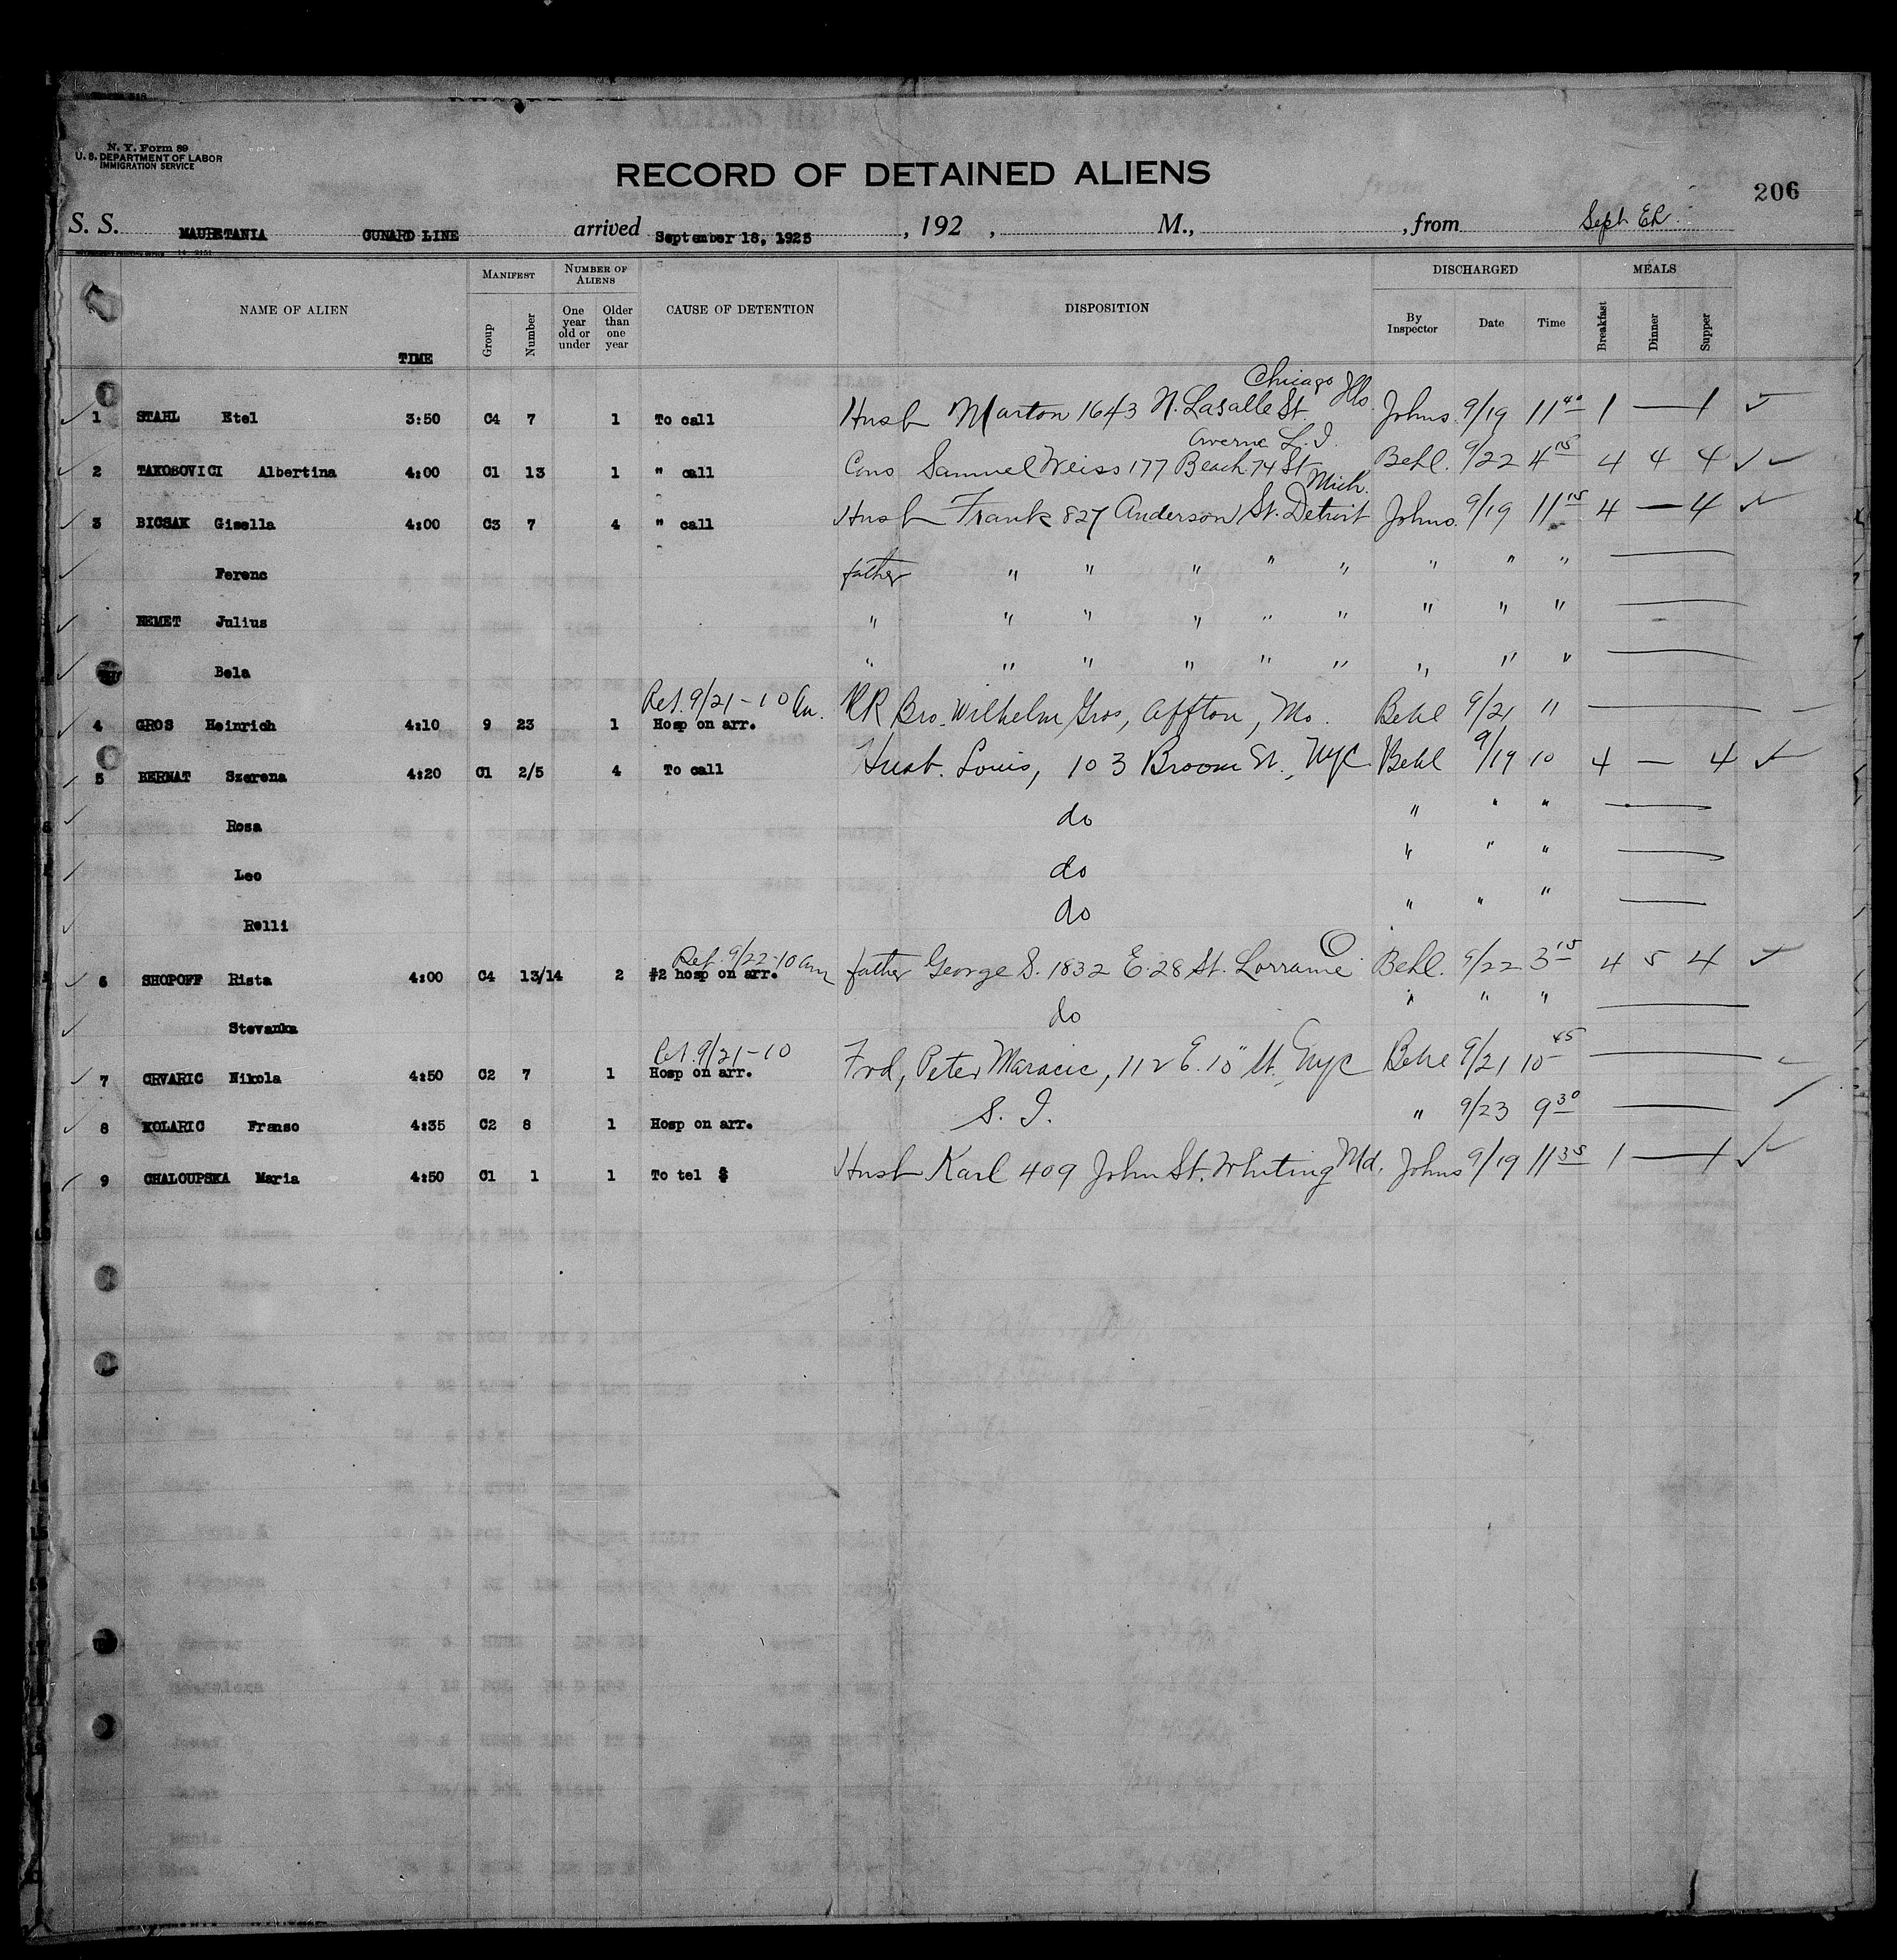 N. Y. Form 89
U. S. DEPARTMENT OF LABOR
IMMIGRATION SERVICE
RECORD OF DETAINED ALIENS
206
S. S. MAURETANIA CUNARD LINE arrived September 18, 1925, 192 , M., , from Sept
NAME OF ALIEN TIME MANIFEST Group Number NUMBER OF ALIENS One year old or under Older than one year CAUSE OF DETENTION DISPOSITION DISCHARGED By Inspector Date Time MEALS Breakfast Dinner Supper
Chicago Ills.
1 STAHL Etel 3:50 C4 7 1 To call Husb Marton 1643 N. Lasalle St. Johns 9/19 11 40 1 — 1 ✓
Averne L. I.
2 TAKOBOVICI Albertina 4:00 C1 13 1 " call Cons Samuel Weiss 177 Beach 74 St Behl. 9/22 4 15 4 4 4 ✓ ✓
Mich.
3 BICSAK Gisella 4:00 C3 7 4 " call Husb Frank 827 Anderson St. Detroit Johns. 9/19 11 15 4 — 4 ✓
Ferenc father " " " " " " " " —
NEMET Julius " " " " " " " " " —
Bela " " " " " " " " " —
Ret. 9/21 - 10 am.
4 GROS Heinrich 4:10 9 23 1 Hosp on arr. RR Bro. Wilhelm Gros, Affton, Mo. Behl 9/21 11 —
5 BERNAT Szerena 4:20 C1 2/5 4 To call Husb. Louis, 103 Broom St., NYC Behl 9/19 10 4 — 4 ✓
Rosa do " " " —
Leo do " " " —
Relli do " " " —
Ret. 9/22-10 am
6 SHOPOFF Rista 4:00 C4 13/14 2 #2 hosp on arr. father George S. 1832 E. 28 St. Lorraine O Behl. 9/22 3 15 4 5 4 ✓
Stevanka do " " " —
Ret. 9/21-10
7 CRVARIC Nikola 4:50 C2 7 1 Hosp on arr. Frd, Peter Maracic, 112 E. 10" St. NYC Behl 9/21 10 45 —
8 KOLARIC Franso 4:35 C2 8 1 Hosp on arr. S. I. " 9/23 9 30 —
9 CHALOUPSKA Maria 4:50 C1 1 1 To tel $ Husb Karl 409 John St. Whiting Md. Johns 9/19 11 35 1 — 1 ✓